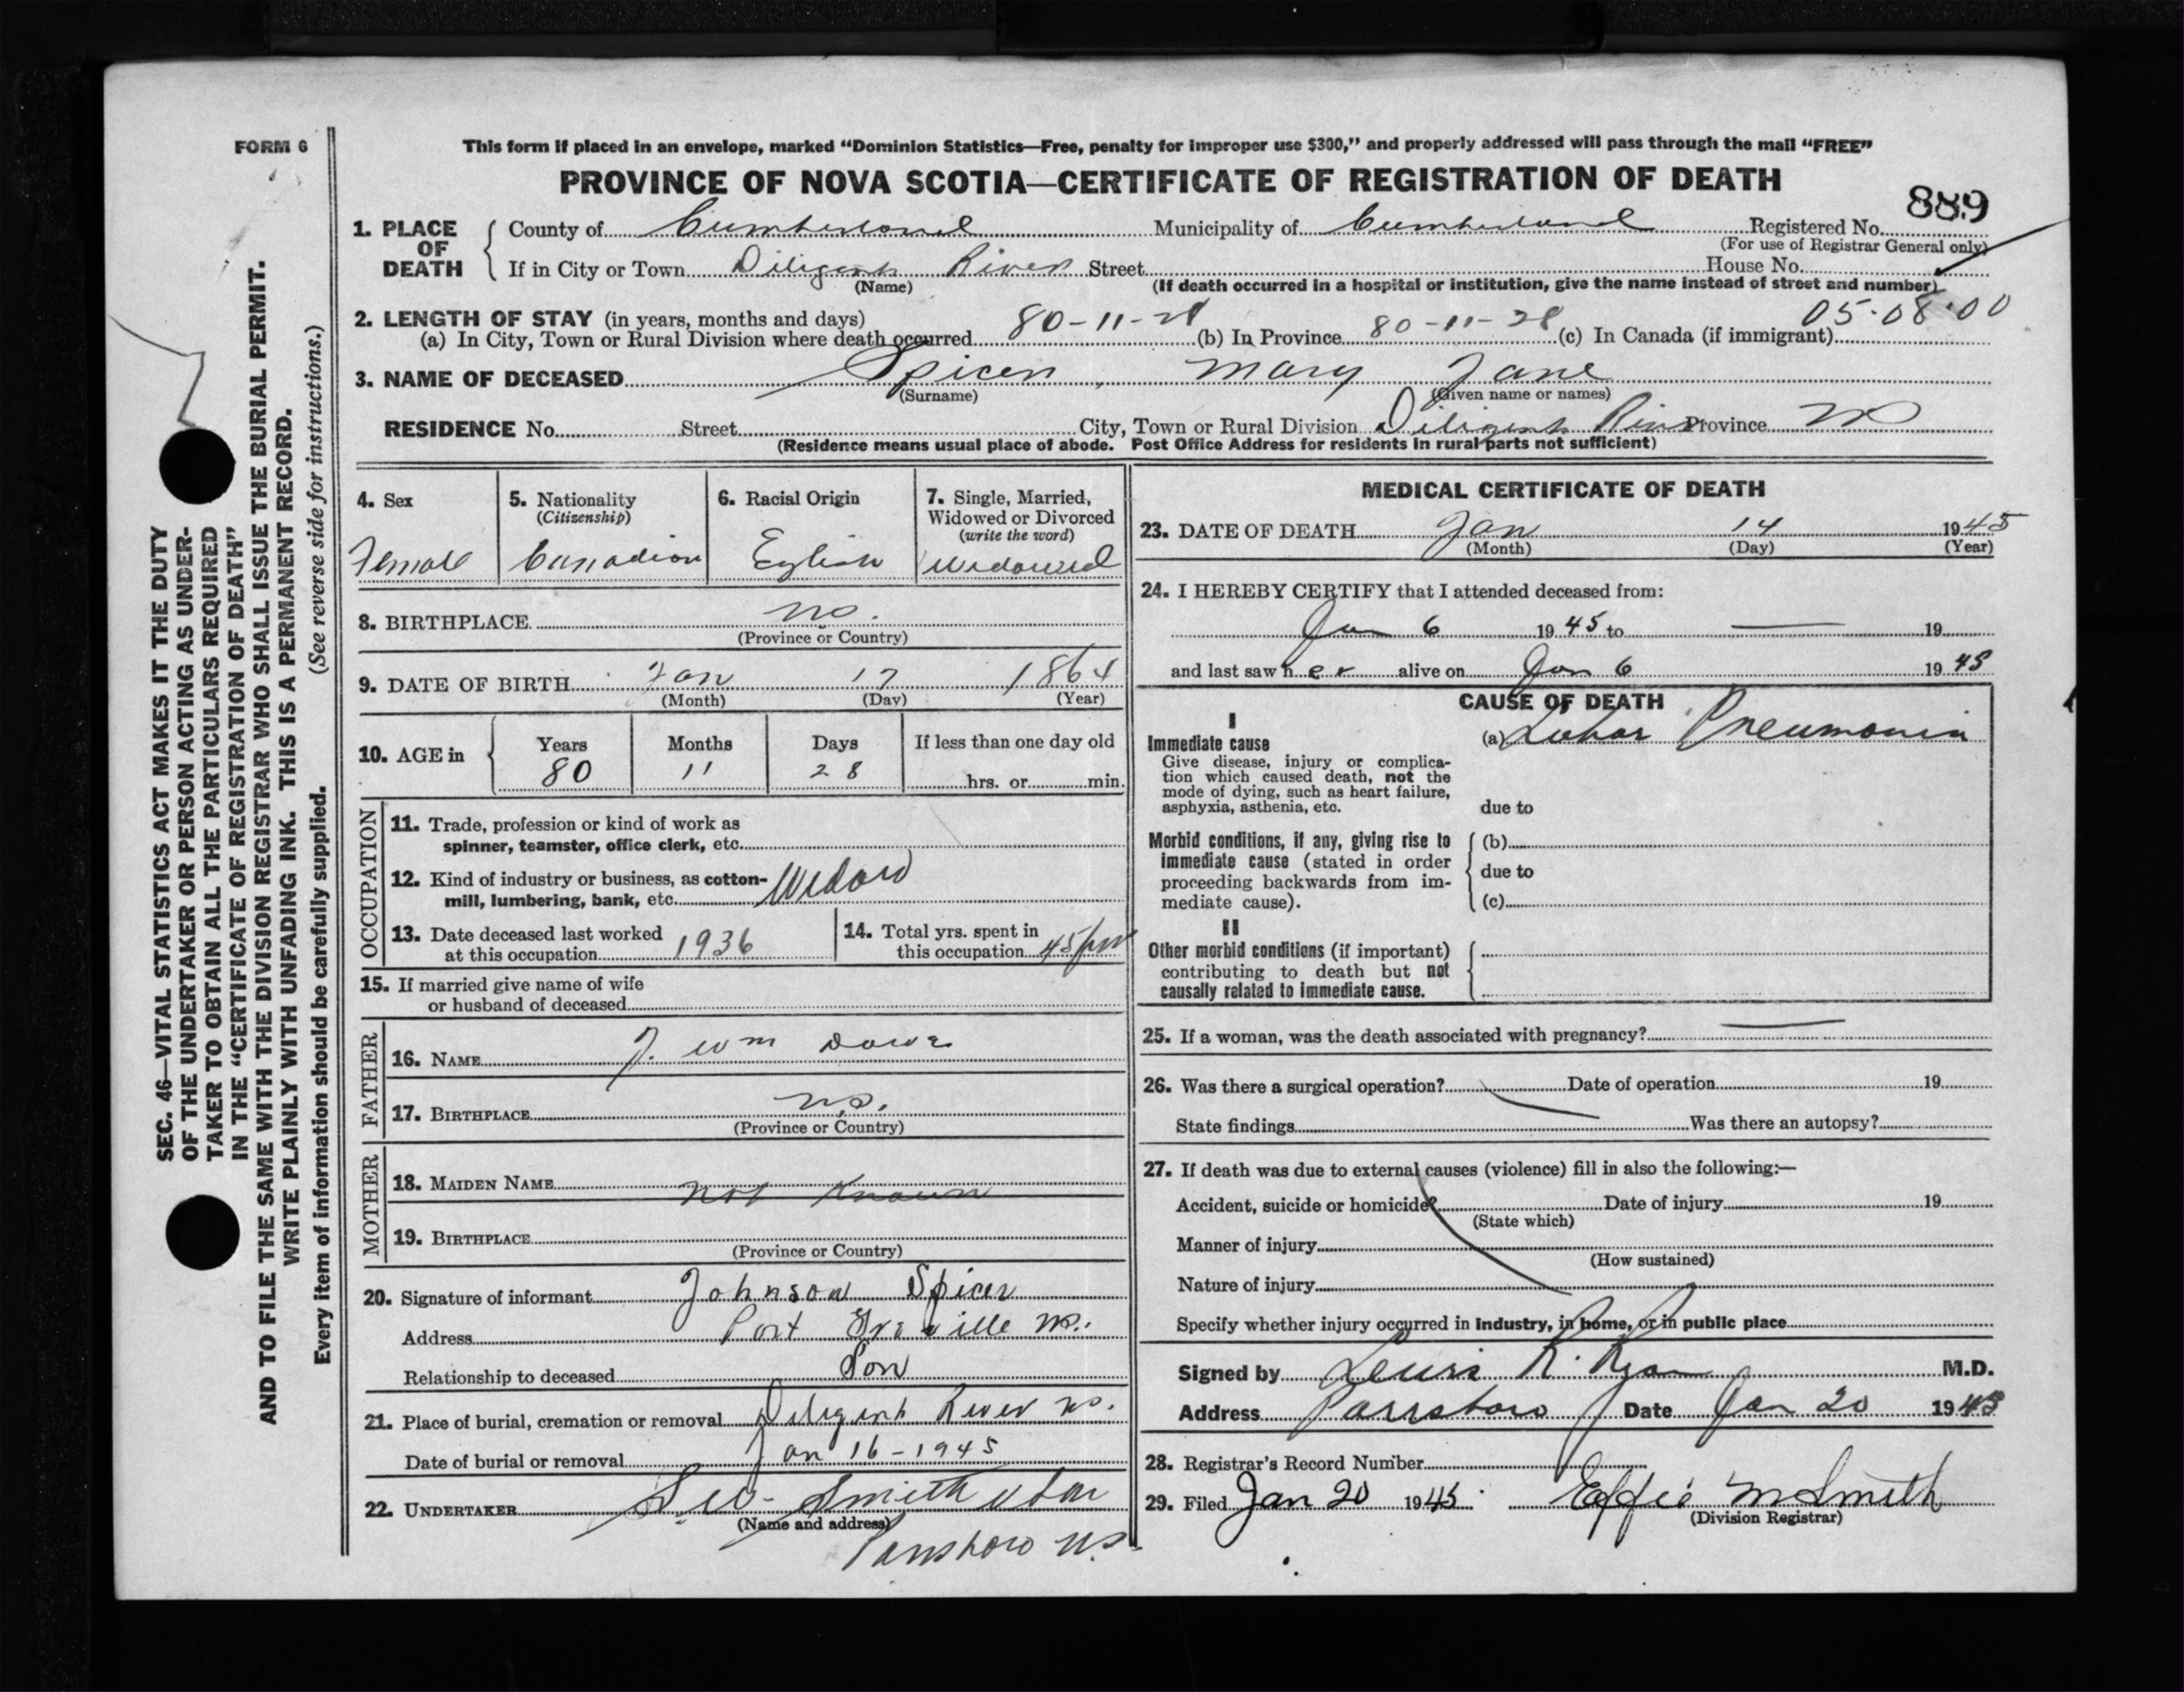 FORM 6
This form if placed in an envelope, marked “Dominion Statistics—Free, penalty for improper use $300,” and properly addressed will pass through the mail “FREE”
PROVINCE OF NOVA SCOTIA—CERTIFICATE OF REGISTRATION OF DEATH
889
1. PLACE OF DEATH
County of Cumberland Municipality of Cumberland Registered No.
(For use of Registrar General only)
If in City or Town Diligent River Street House No.
(Name) (If death occurred in a hospital or institution, give the name instead of street and number)
05·08·00
2. LENGTH OF STAY (in years, months and days)
(a) In City, Town or Rural Division where death occurred 80-11-28 (b) In Province 80-11-28 (c) In Canada (if immigrant)
3. NAME OF DECEASED Spicer, Mary Jane
(Surname) (Given name or names)
RESIDENCE No. Street City, Town or Rural Division Diligent River Province NS
(Residence means usual place of abode. Post Office Address for residents in rural parts not sufficient)
4. Sex
Female
5. Nationality
(Citizenship)
Canadian
6. Racial Origin
Eglish
7. Single, Married,
Widowed or Divorced
(write the word)
Widowed
8. BIRTHPLACE NS.
(Province or Country)
9. DATE OF BIRTH Jan 17 1864
(Month) (Day) (Year)
10. AGE in
Years Months Days If less than one day old
80 11 28 hrs. or min.
OCCUPATION
11. Trade, profession or kind of work as
spinner, teamster, office clerk, etc.
12. Kind of industry or business, as cotton-
mill, lumbering, bank, etc. Widow
13. Date deceased last worked
at this occupation 1936
14. Total yrs. spent in
this occupation 45
15. If married give name of wife
or husband of deceased
FATHER
16. NAME J. Wm
17. BIRTHPLACE NS.
(Province or Country)
MOTHER
18. MAIDEN NAME not known
19. BIRTHPLACE
(Province or Country)
20. Signature of informant Johnson Spicer
Address Port Greville NS.
Relationship to deceased Son
21. Place of burial, cremation or removal Diligent River NS.
Date of burial or removal Jan 16-1945
22. UNDERTAKER Smith
(Name and address)
Parrsboro N.S.
MEDICAL CERTIFICATE OF DEATH
23. DATE OF DEATH Jan 14 1945
(Month) (Day) (Year)
24. I HEREBY CERTIFY that I attended deceased from:
Jan 6 1945 to — 19
and last saw her alive on Jan 6 1945
CAUSE OF DEATH
I
Immediate cause
Give disease, injury or complica-
tion which caused death, not the
mode of dying, such as heart failure,
asphyxia, asthenia, etc.
(a) Lobar Pneumonia
due to
Morbid conditions, if any, giving rise to
immediate cause (stated in order
proceeding backwards from im-
mediate cause).
(b)
due to
(c)
II
Other morbid conditions (if important)
contributing to death but not
causally related to immediate cause.
25. If a woman, was the death associated with pregnancy? —
26. Was there a surgical operation? Date of operation 19
State findings Was there an autopsy?
27. If death was due to external causes (violence) fill in also the following:—
Accident, suicide or homicide? Date of injury 19
(State which)
Manner of injury
(How sustained)
Nature of injury
Specify whether injury occurred in industry, in home, or in public place
Signed by Lewis R. Ryan M.D.
Address Parrsboro Date Jan 20 1945
28. Registrar's Record Number
29. Filed Jan 20 1945. Effie M Smith
(Division Registrar)
SEC. 46—VITAL STATISTICS ACT MAKES IT THE DUTY
OF THE UNDERTAKER OR PERSON ACTING AS UNDER-
TAKER TO OBTAIN ALL THE PARTICULARS REQUIRED
IN THE “CERTIFICATE OF REGISTRATION OF DEATH”
AND TO FILE THE SAME WITH THE DIVISION REGISTRAR WHO SHALL ISSUE THE BURIAL PERMIT.
WRITE PLAINLY WITH UNFADING INK. THIS IS A PERMANENT RECORD.
Every item of information should be carefully supplied. (See reverse side for instructions.)